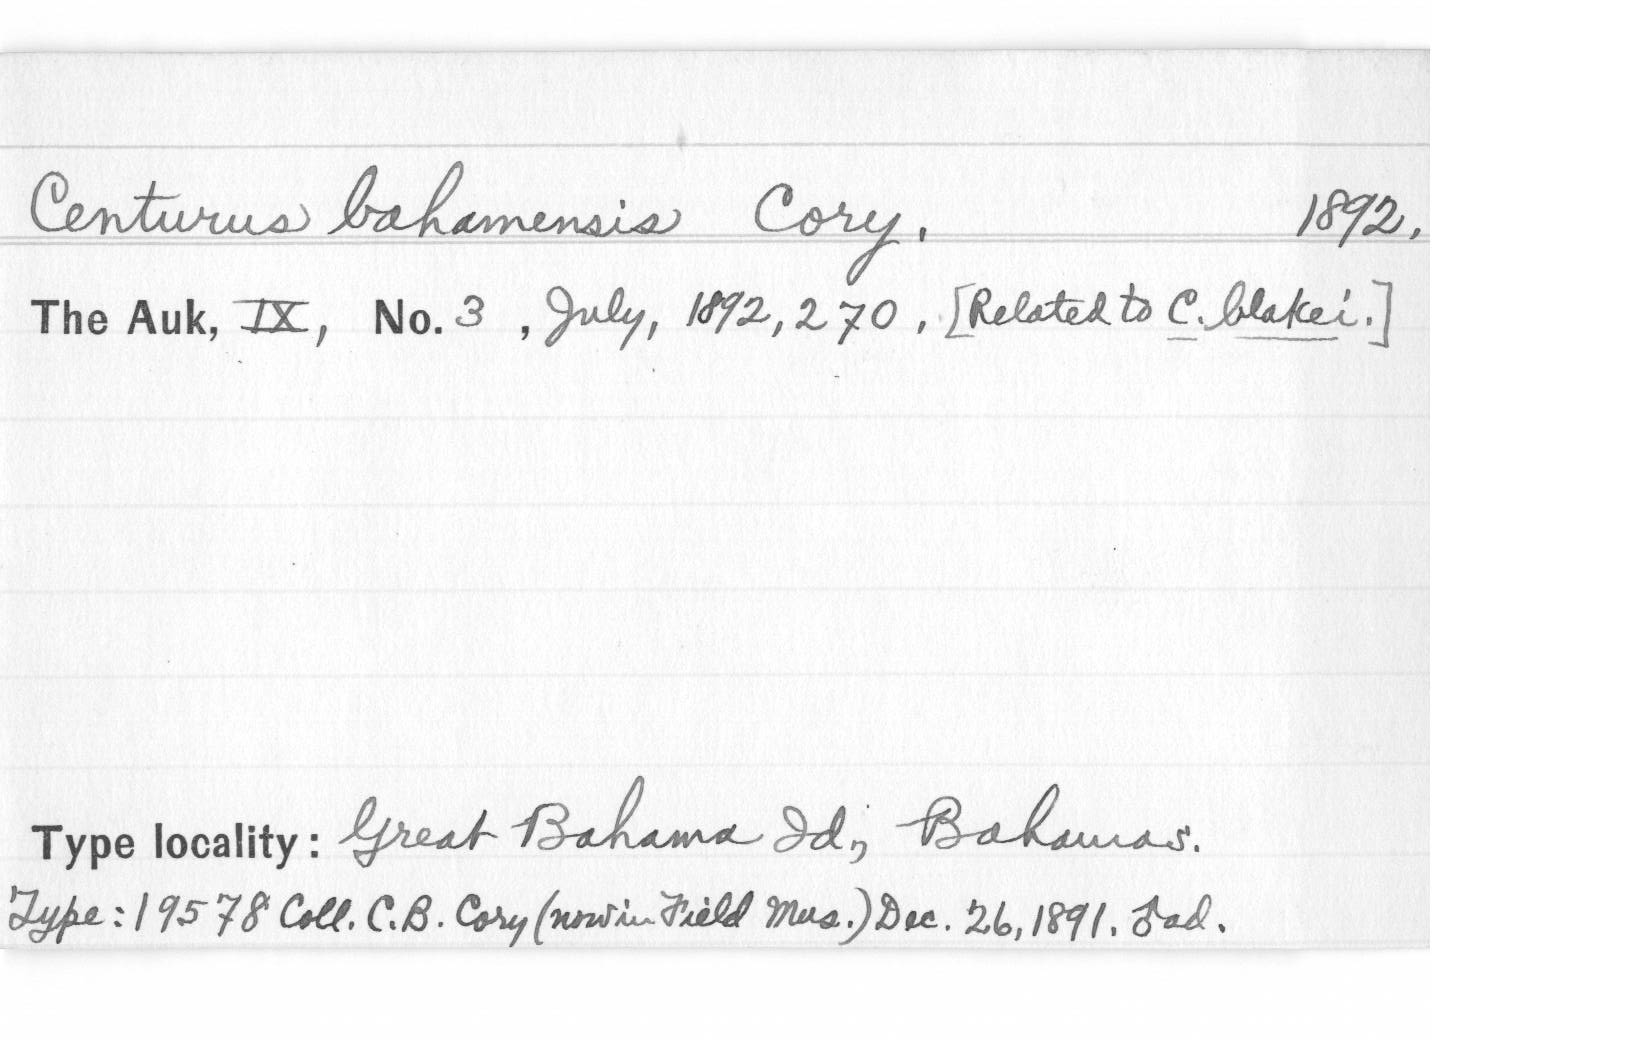 Centurus bahamensis Cory. 1892.
The Auk, IX, No. 3, July, 1892, 270, [Related to C. blakei.]
Type locality: Great Bahama Id., Bahamas.
Type: 19578 Coll. C.B. Cory (now in Field Mus.) Dec. 26, 1891. ♂ ad.